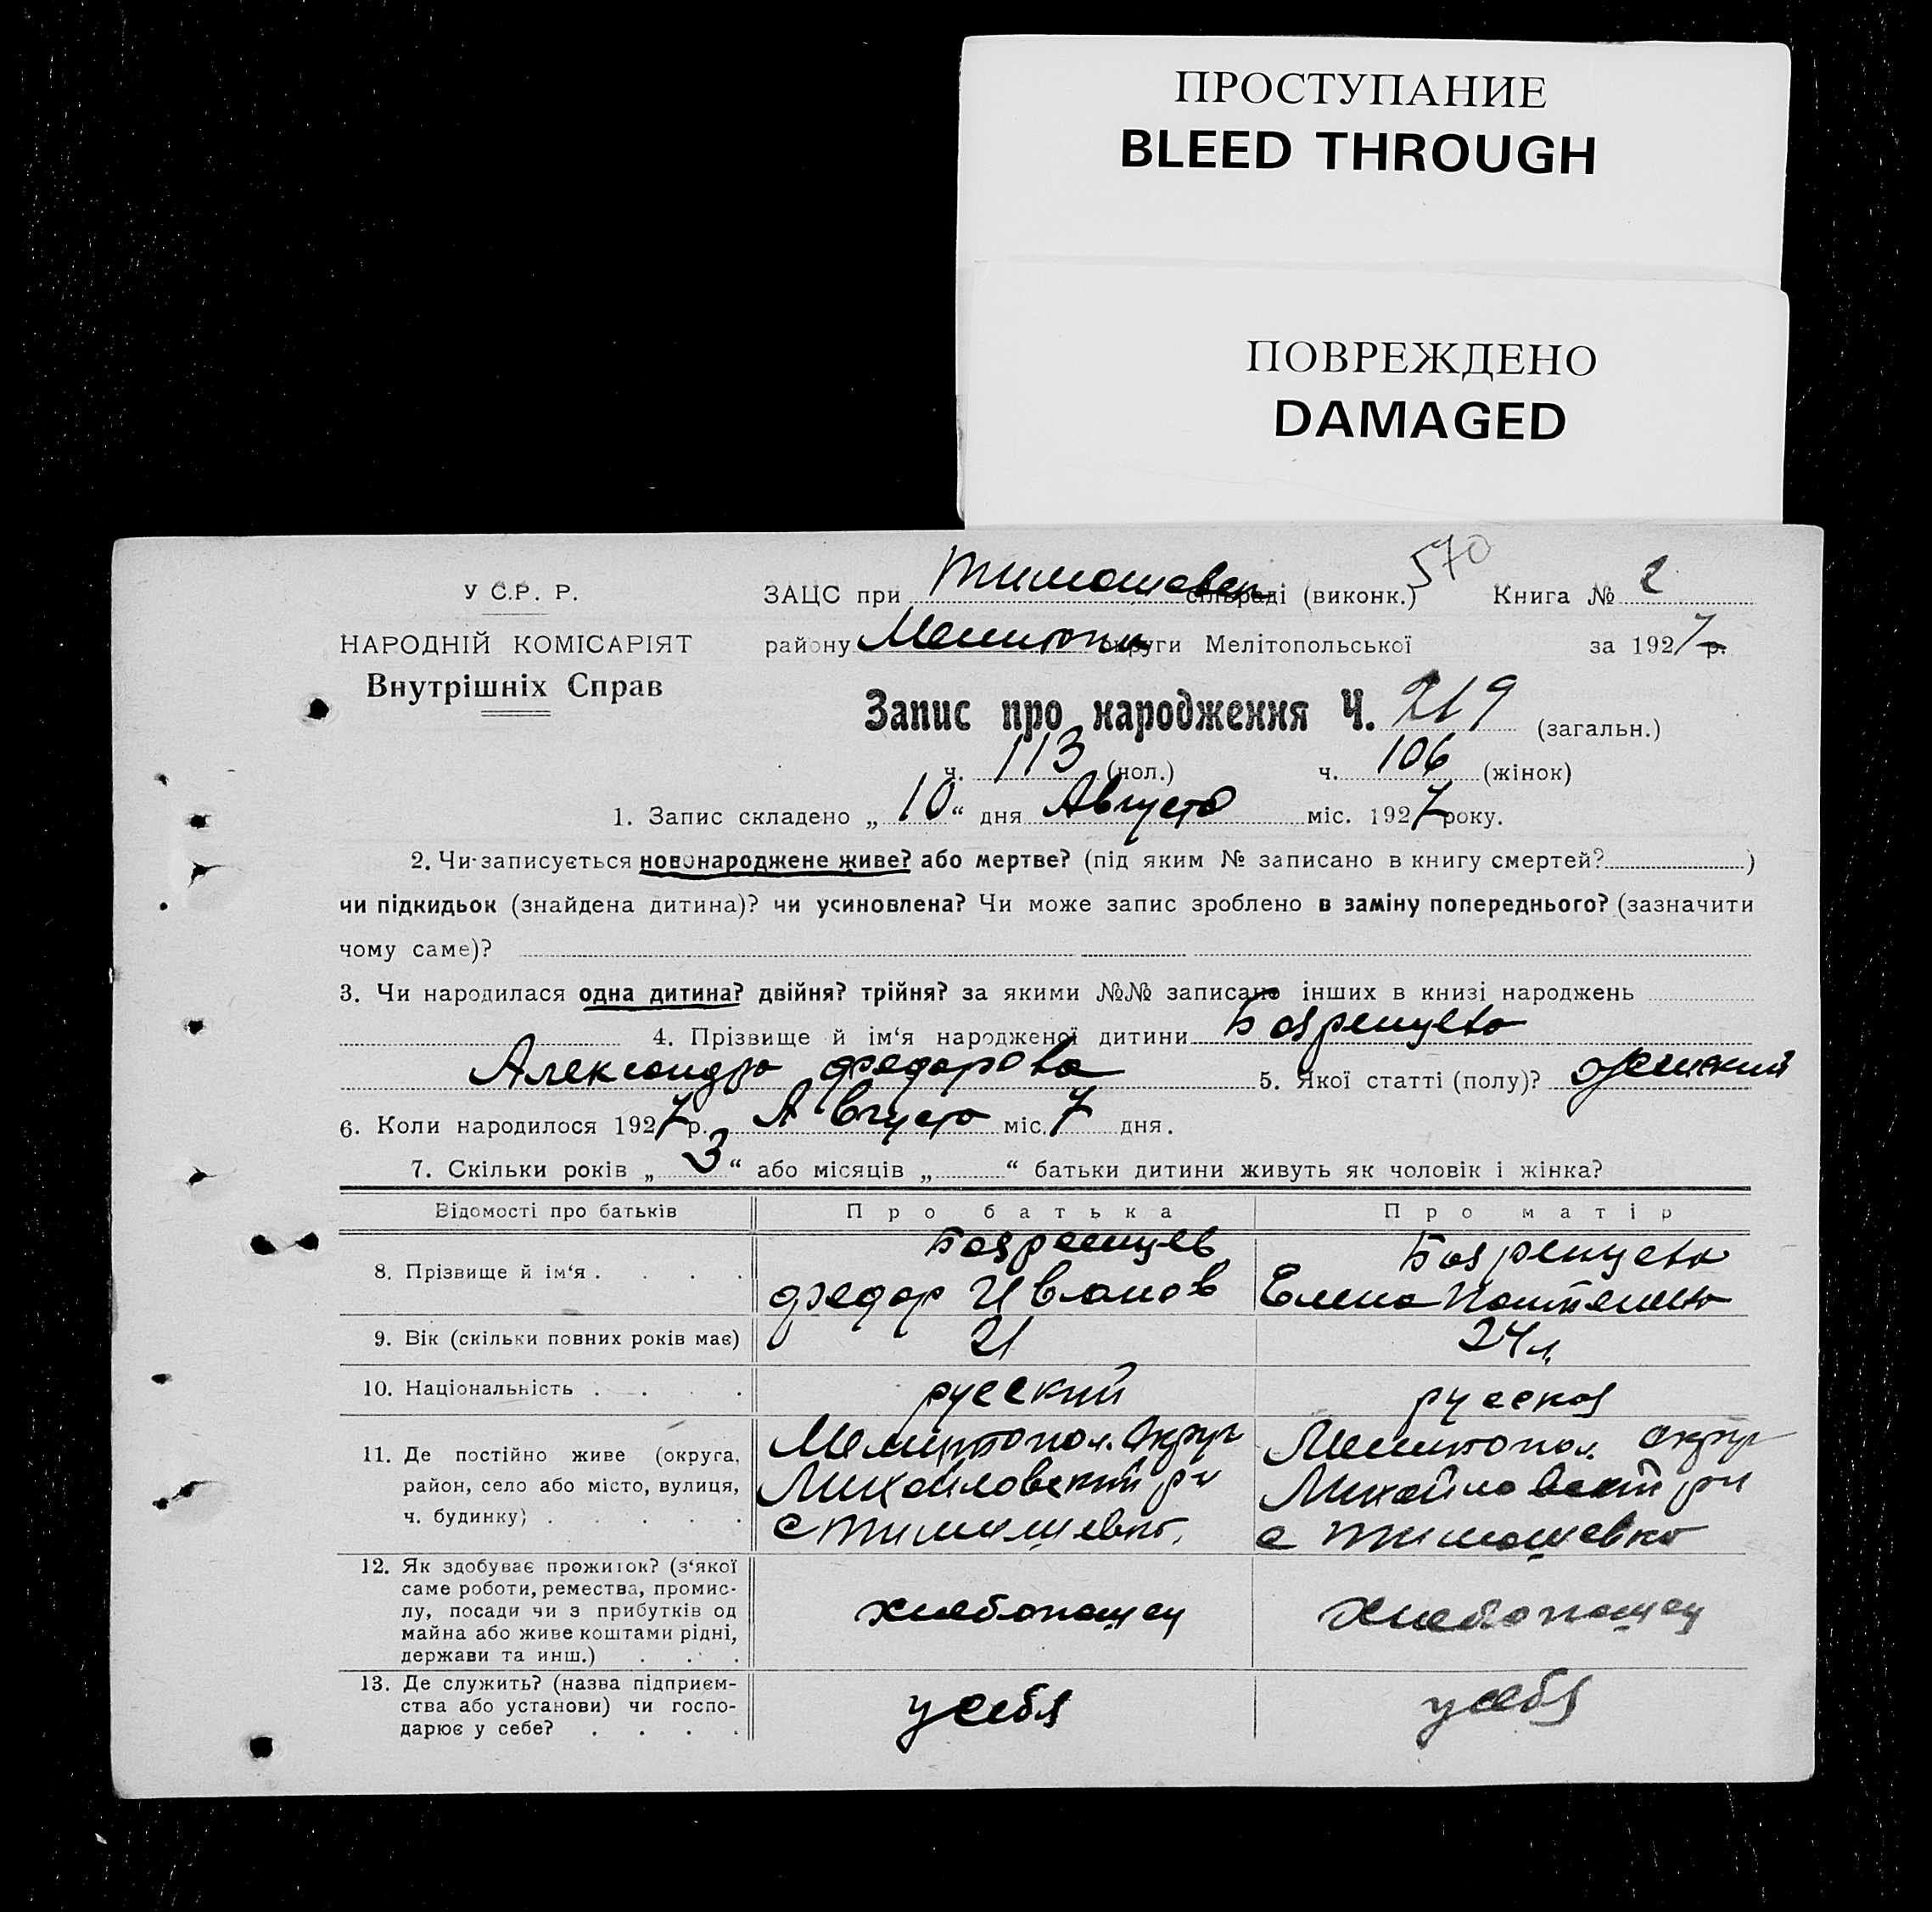 ПРОСТУПАНИЕ
BLEED THROUGH
ПОВРЕЖДЕНО
DAMAGED
570
У С.Р. Р.
ЗАЦС при Тимошевск сільраді (виконк.) Книга № 2
НАРОДНІЙ КОМІСАРІЯТ
району округи Мелітопольської за 1927 р.
Внутрішніх Справ
Запис про народження Ч. 219 (загальн.)
ч. 113 (чол.) ч. 106 (жінок)
1. Запис складено „ 10 “ дня Августа міс. 1927 року.
2. Чи записується новонароджене живе? або мертве? (під яким № записано в книгу смертей? )
чи підкидьок (знайдена дитина)? чи усиновлена? Чи може запис зроблено в заміну попереднього? (зазначити
чому саме)?
3. Чи народилася одна дитина? двійня? трійня? за якими №№ записано інших в книзі народжень
4. Прізвище й ім‘я народженої дитини Бояренцева
Александра Федорова 5. Якої статті (полу)? женский
6. Коли народилося 1927 р. Августа міс. 7 дня.
7. Скільки років „ 3 “ або місяців „ “ батьки дитини живуть як чоловік і жінка?
Відомості про батьків Про батька Про матір
8. Прізвище й ім‘я . . . . Бояренцев Бояренцева
Федор Иванов Елена
9. Вік (скільки повних років має) 21 24 л.
10. Національність . . . . русский русская
11. Де постійно живе (округа, Мелитопол. Округ Мелитопол. округ
район, село або місто, вулиця, Михайловский рн Михайловский рн
ч. будинку) . . . . . с Тимошевка. с Тимошевка
12. Як здобуває прожиток? (з‘якої
саме роботи, ремества, промис-
лу, посади чи з прибутків од хлебопашец хлебопашец
майна або живе коштами рідні,
держави та инш.) . . .
13. Де служить? (назва підприєм-
ства або установи) чи госпо- у себя у себя
дарює у себе? . . . .